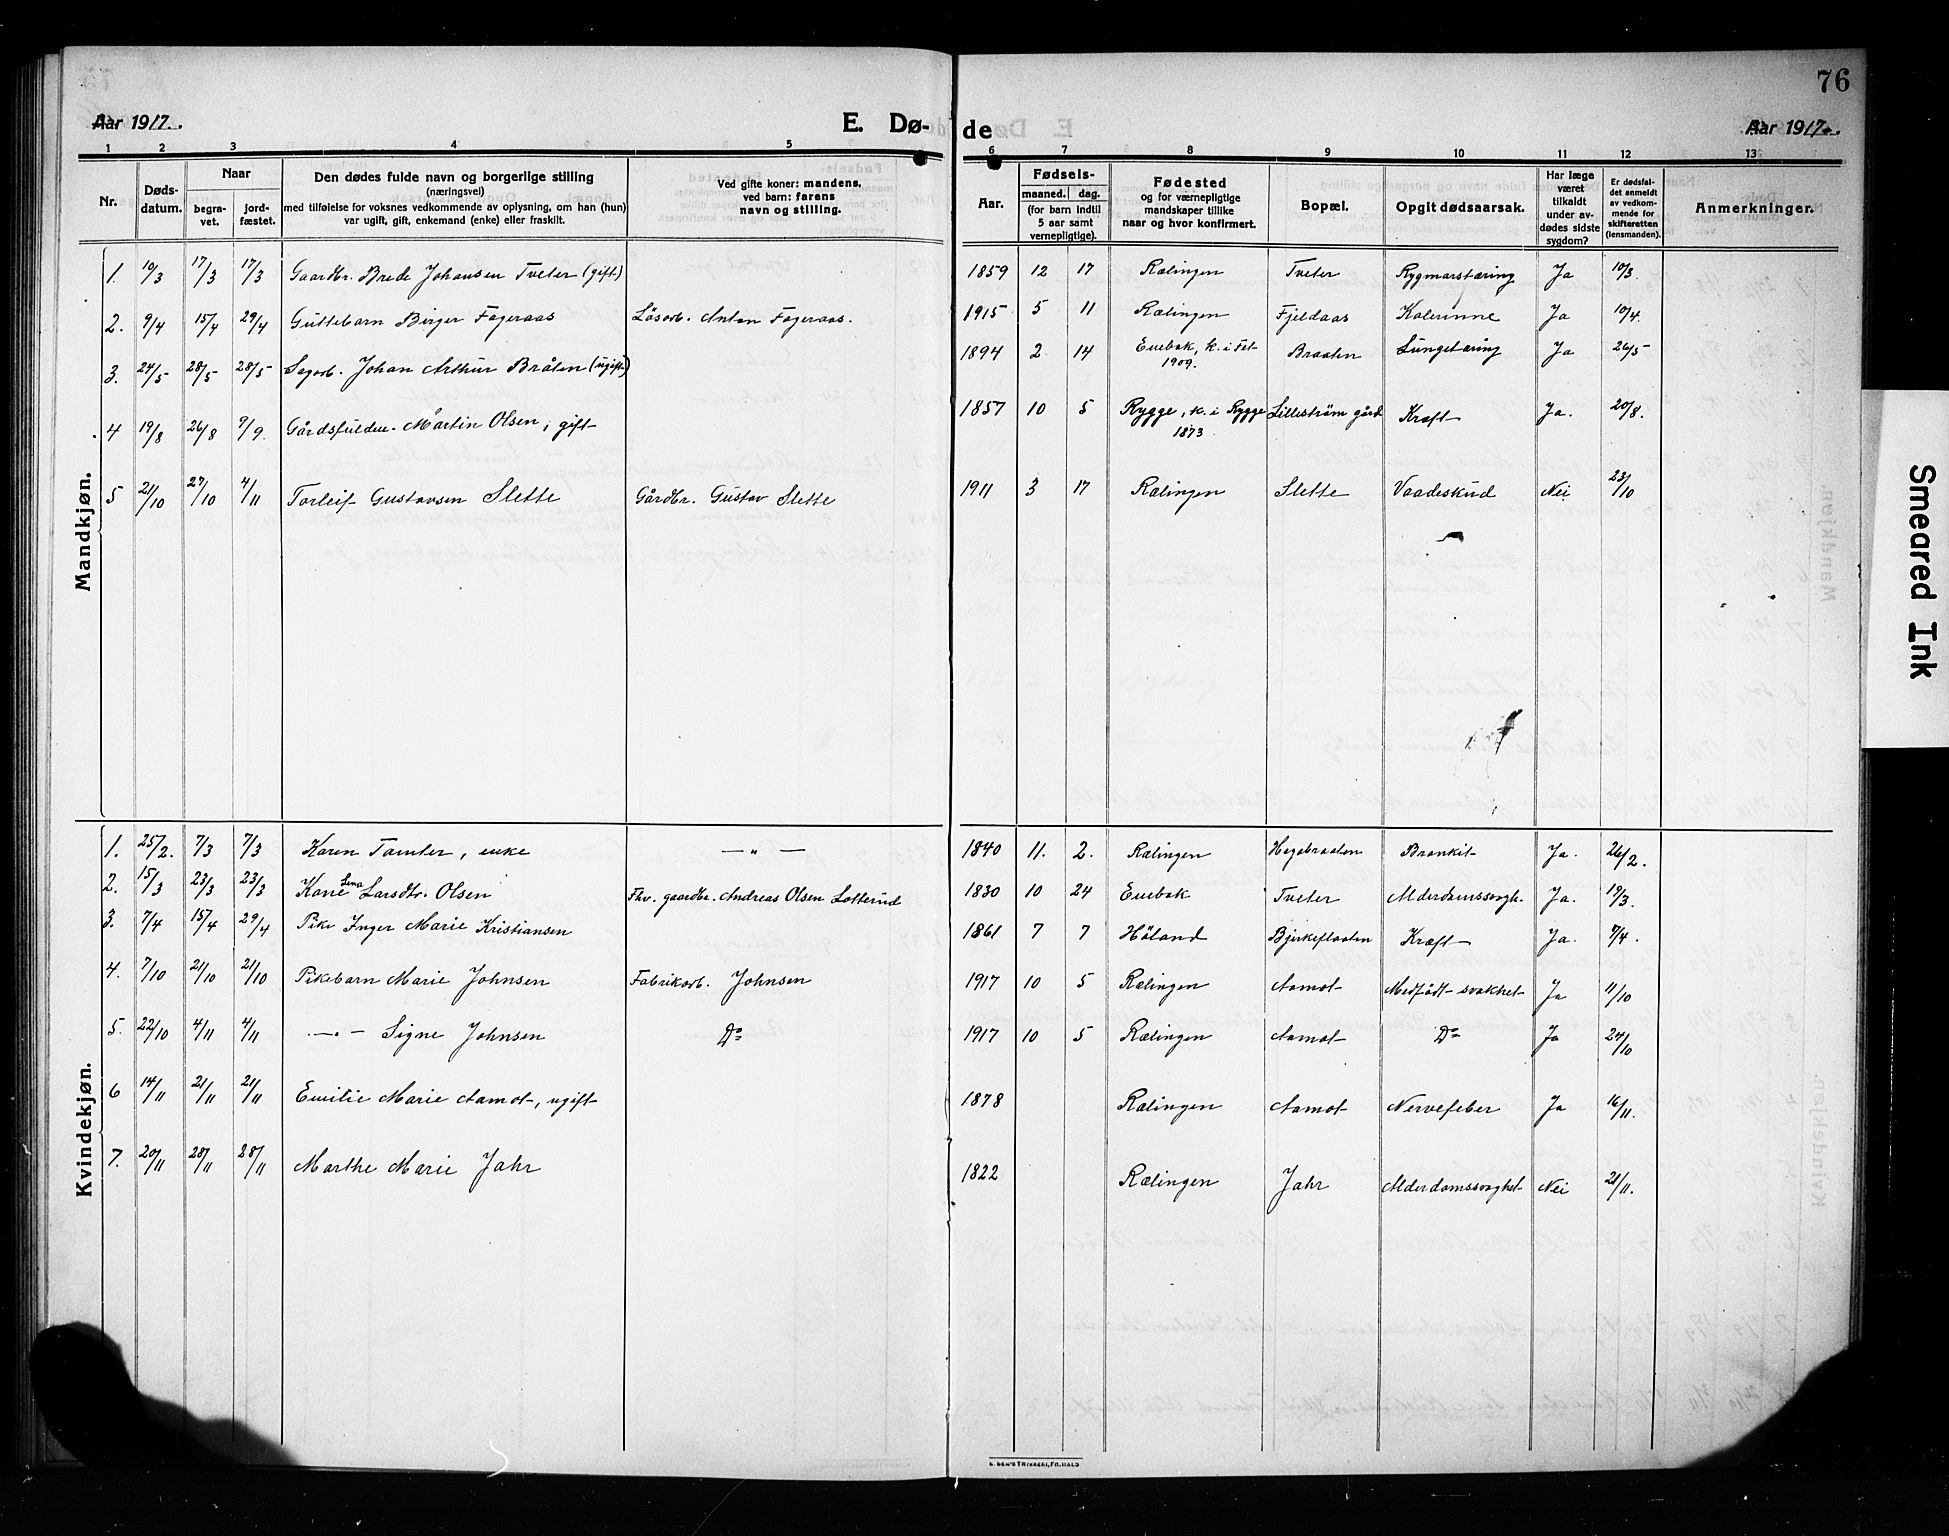 76
Aar 1917.
E. Dø-
de
Aar 1917.
1 2 3 4 5 6 7 8 9 10 11 12 13
Nr.
Døds-
datum.
Naar
begra-
vet.
jord-
fæstet.
Den dødes fulde navn og borgerlige stilling
(næringsvei)
med tilføielse for voksnes vedkommende av oplysning, om han (hun)
var ugift, gift, enkemand (enke) eller fraskilt.
Ved gifte koner: mandens,
ved barn: farens
navn og stilling.
Aar.
Fødsels-
maaned. dag.
(for barn indtil
5 aar samt
vernepligtige).
Fødested
og for værnepligtige
mandskaper tillike
naar og hvor konfirmert.
Bopæl.
Opgit dødsaarsak.
Har læge
været
tilkaldt
under av-
dødes sidste
sygdom?
Er dødsfal-
det anmeldt
av vedkom-
mende for
skifteretten
(lensmanden).
Anmerkninger.
Mandkjøn.
1. 10/3 17/3 17/3 Gaardbr. Brede Johansen Tveter (gift) 1859 12 17 Rælingen Tveter Rygmarstæring Ja 10/3.
2. 9/4 15/4 29/4 Guttebarn Birger Fageraas Løsarb. Anton Fageraas. 1915 5 11 Rælingen Fjeldaas Kolerinne Ja 10/4.
3. 24/5 28/5 28/5 Sagarb. Johan Arthur Bråten (ugift) 1894 2 14 Enebak, k. i Fet 1909. Braaten Lungetæring Ja 26/5
4 19/8 26/8 9/9. Gårdsfuldm. Martin Olsen, gift 1857 10 5 Rygge, k. i Rygge 1873. Lillestrøm gård Kræft Ja. 20/8.
5 21/10 27/10 4/11 Torleif Gustavsen Slette Gårdbr. Gustav Slette 1911 3 17 Rælingen Slette Vaadeskud Nei 23/10
Kvindekjøn.
1. 25/2. 7/3 7/3 Karen Tamter, enke — " — 1840 11. 2. Rælingen Hegebraaten Bronkit Ja. 26/2.
2. 15/3 23/3 23/3 Kane Lina Larsdtr. Olsen Fhv. gaardbr. Andreas Olsen Lotterud 1830 10 24 Enebak Tveter Alderdomssvagh. Ja. 19/3.
3. 7/4 15/4 29/4 Pike Inger Marie Kristiansen 1861 7 7 Høland Bjerkeflaaten Kræft Ja. 9/4.
4. 7/10 21/10 21/10 Pikebarn Marie Johnsen Fabrikarb. Johnsen 1917 10 5 Rælingen Aamot Medfødt svakhet Ja 11/10
5. 22/10 4/11 4/11 — " — Signe Johnsen Do 1917 10 5 Rælingen Aamot Do Ja 24/10
6 14/11 21/11 21/11 Emilie Marie Aamot, ugift 1878 Rælingen Aamot Nervefeber Ja 16/11.
7. 20/11 28/11 28/11 Marthe Marie Jahr 1822 Rælingen Jahr Alderdomssvaghet Nei 21/11.
Smeared Ink